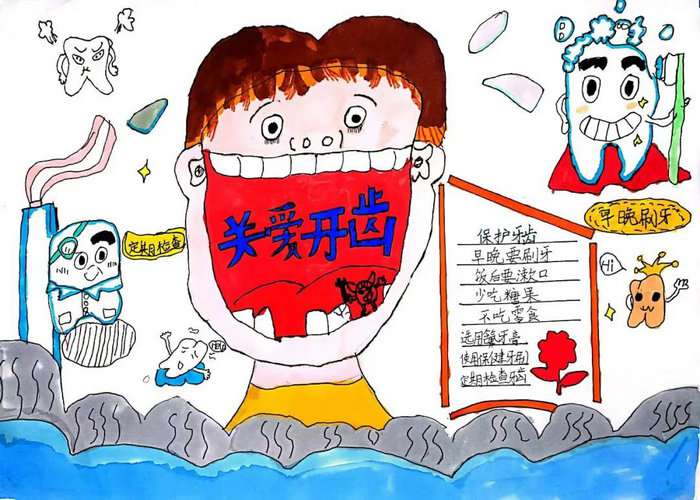 关爱牙齿
定期检查
早晚刷牙
Hi
保护牙齿
早晚要刷牙
饭后要漱口
少吃糖果
不吃零食
使用保健牙刷
定期检查牙齿